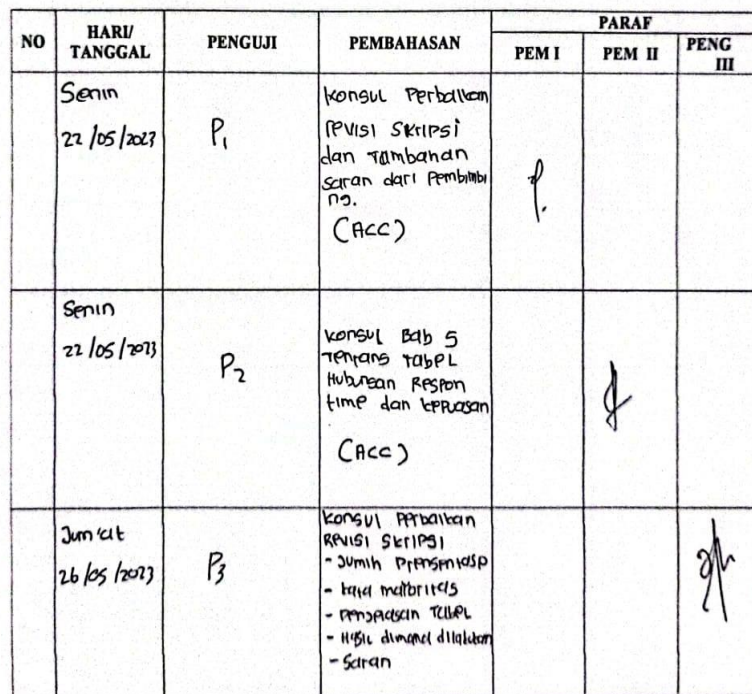 NO HARI/ TANGGAL PENGUJI PEMBAHASAN PARAF
PEM I PEM II PENG III
Senin
22/05/2023
P1
Konsul Perbaikan
revisi skripsi
dan Tambahan
saran dari Pembimbi
ng.
(ACC)
Senin
22/05/2023
P2
Konsul Bab 5
Tentang Tabel
Hubungan Respon
time dan kepuasan
(ACC)
Jum'at
26/05/2023
P3
Konsul Perbaikan
Revisi skripsi
- Jumlh
- kata
- Penjelasan Tabel
- dimana dilakukan
- Saran